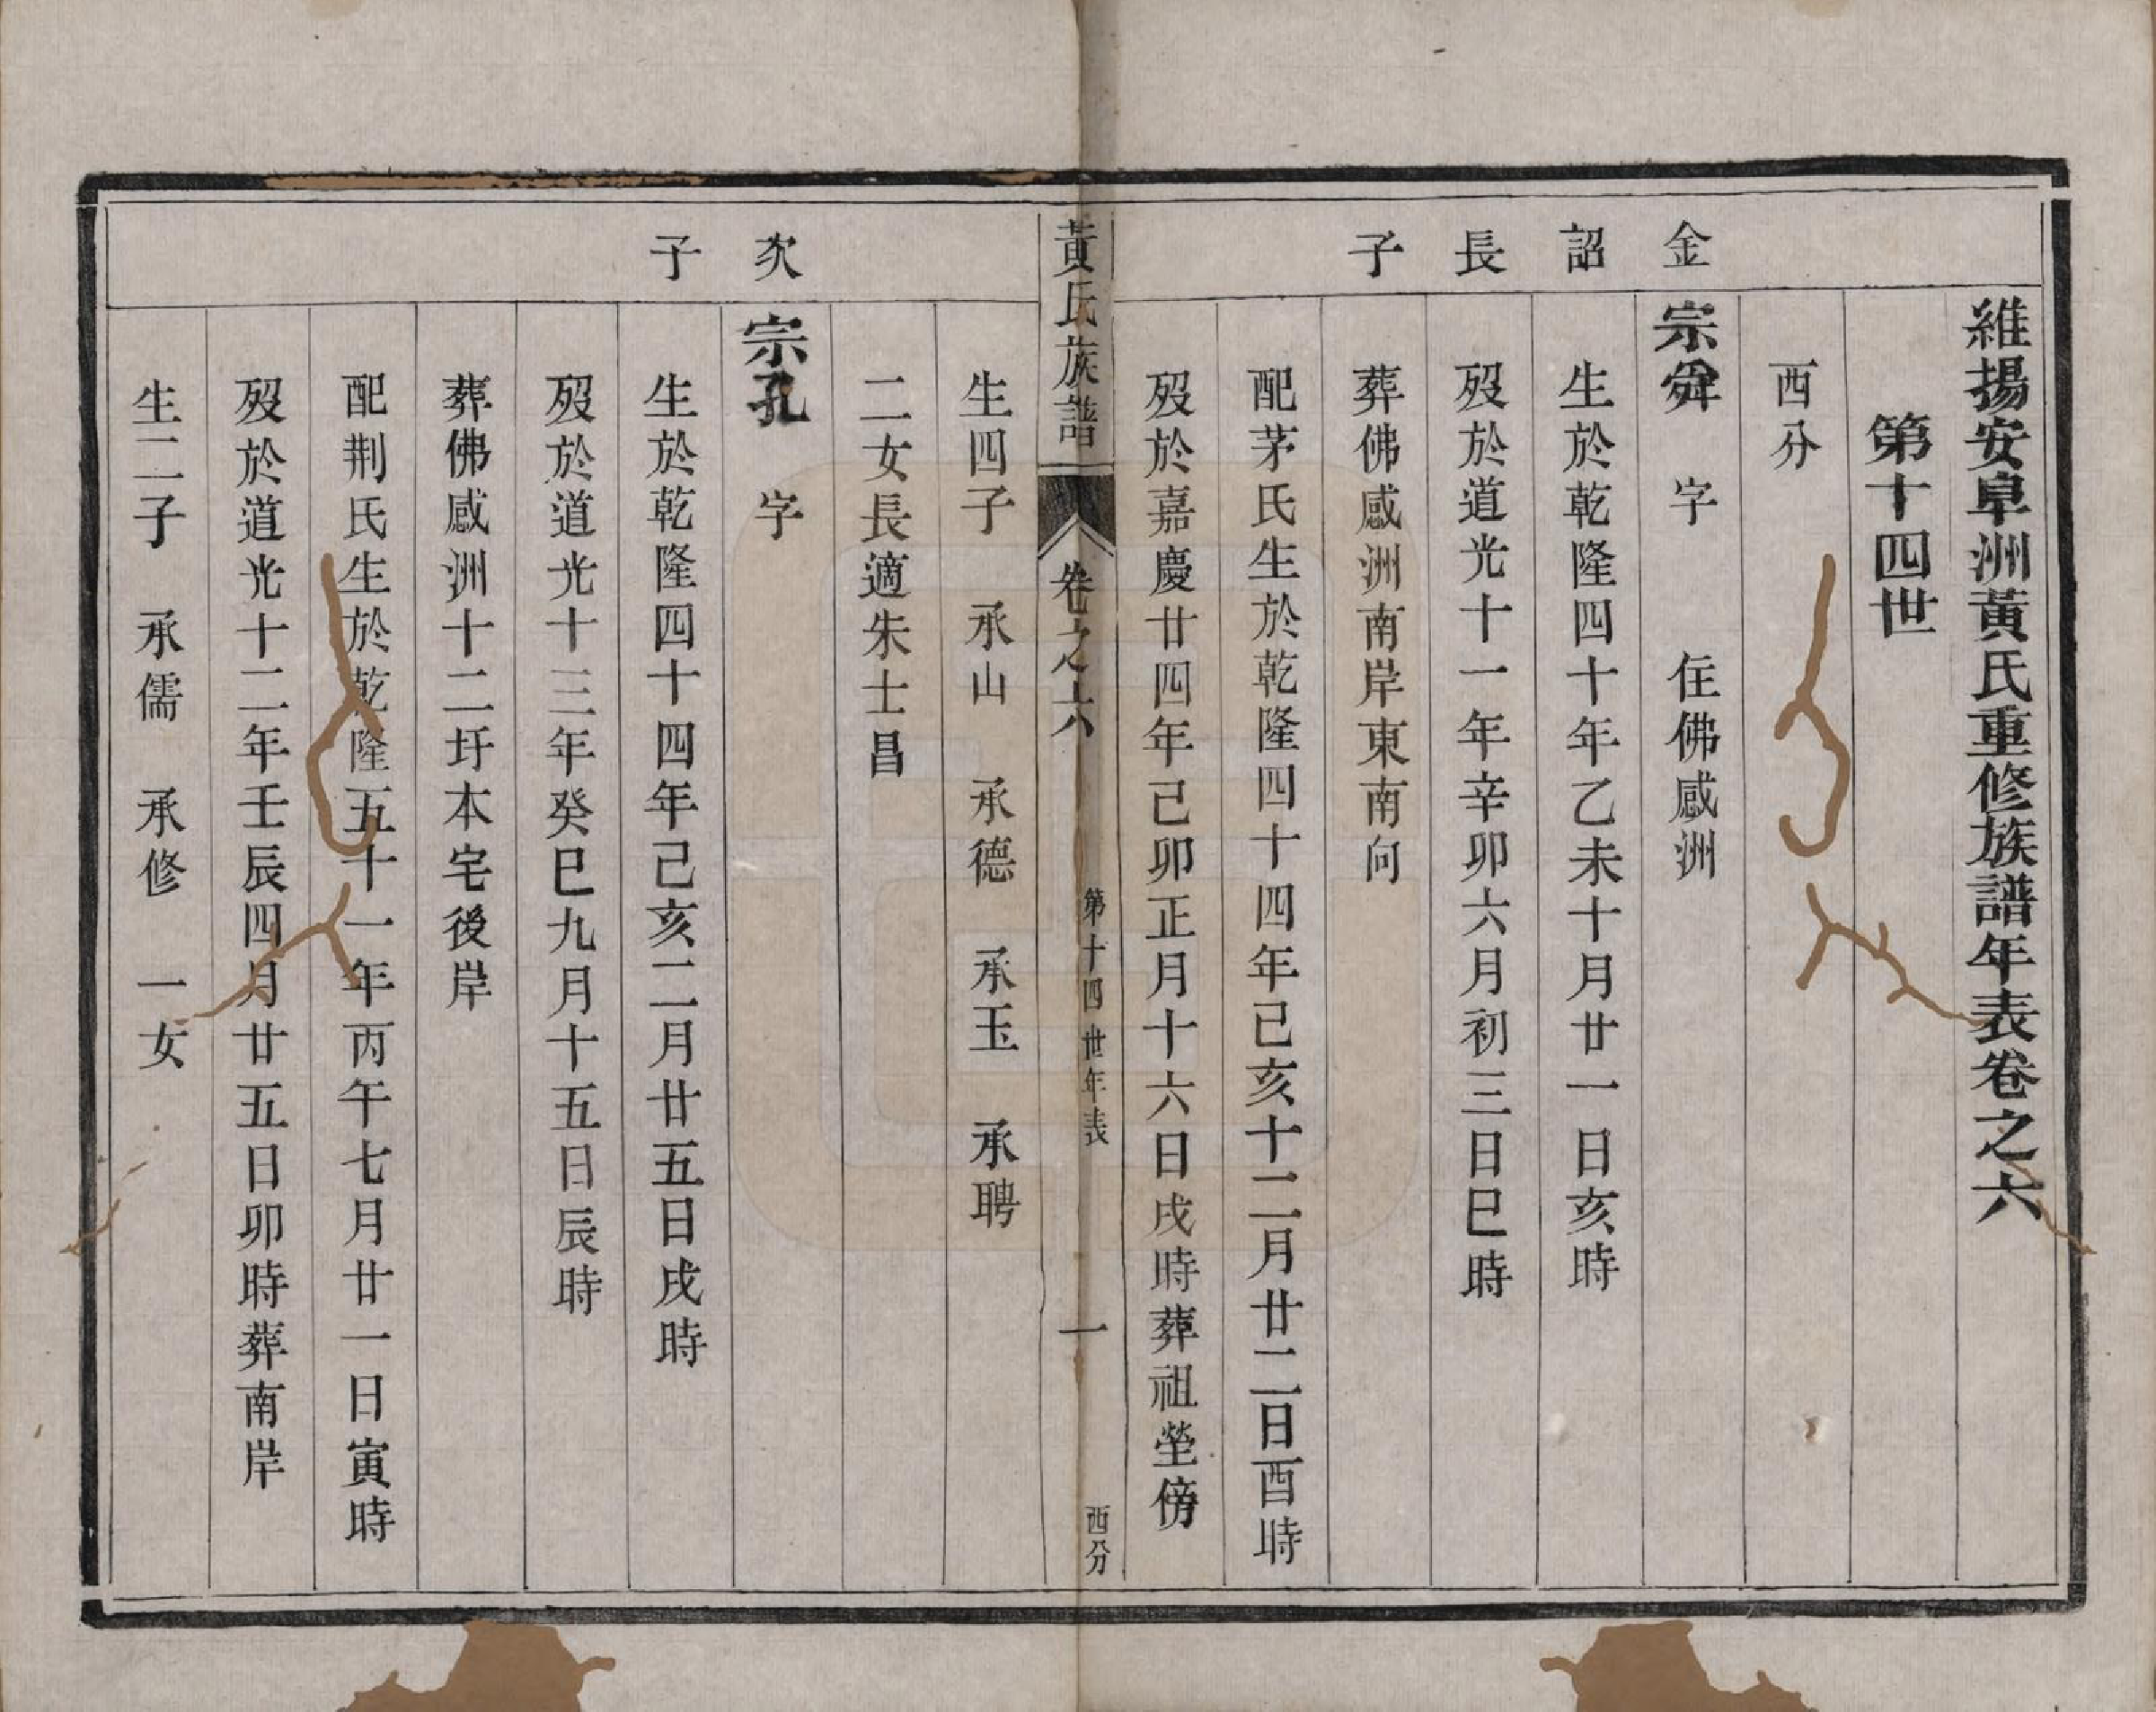 維揚安阜洲黃氏重修族譜年表卷之六
第十四世
西分
金詔長子
宗舜 字 住佛感洲
生於乾隆四十年乙未十月廿一日亥時
歿於道光十一年辛卯六月初三日巳時
葬佛感洲南岸東南向
配茅氏生於乾隆四十四年己亥十二月廿二日酉時
歿於嘉慶廿四年己卯正月十六日戌時葬祖塋傍
黃氏族譜 卷之六 第十四世年表 一 西分
生四子 承山 承德 承玉 承聘
二女長適朱士昌
次子
宗孔 字
生於乾隆四十四年己亥二月廿五日戌時
歿於道光十三年癸巳九月十五日辰時
葬佛感洲十二圩本宅後岸
配荆氏生於乾隆五十一年丙午七月廿一日寅時
歿於道光十二年壬辰四月廿五日卯時葬南岸
生二子 承儒 承修 一女